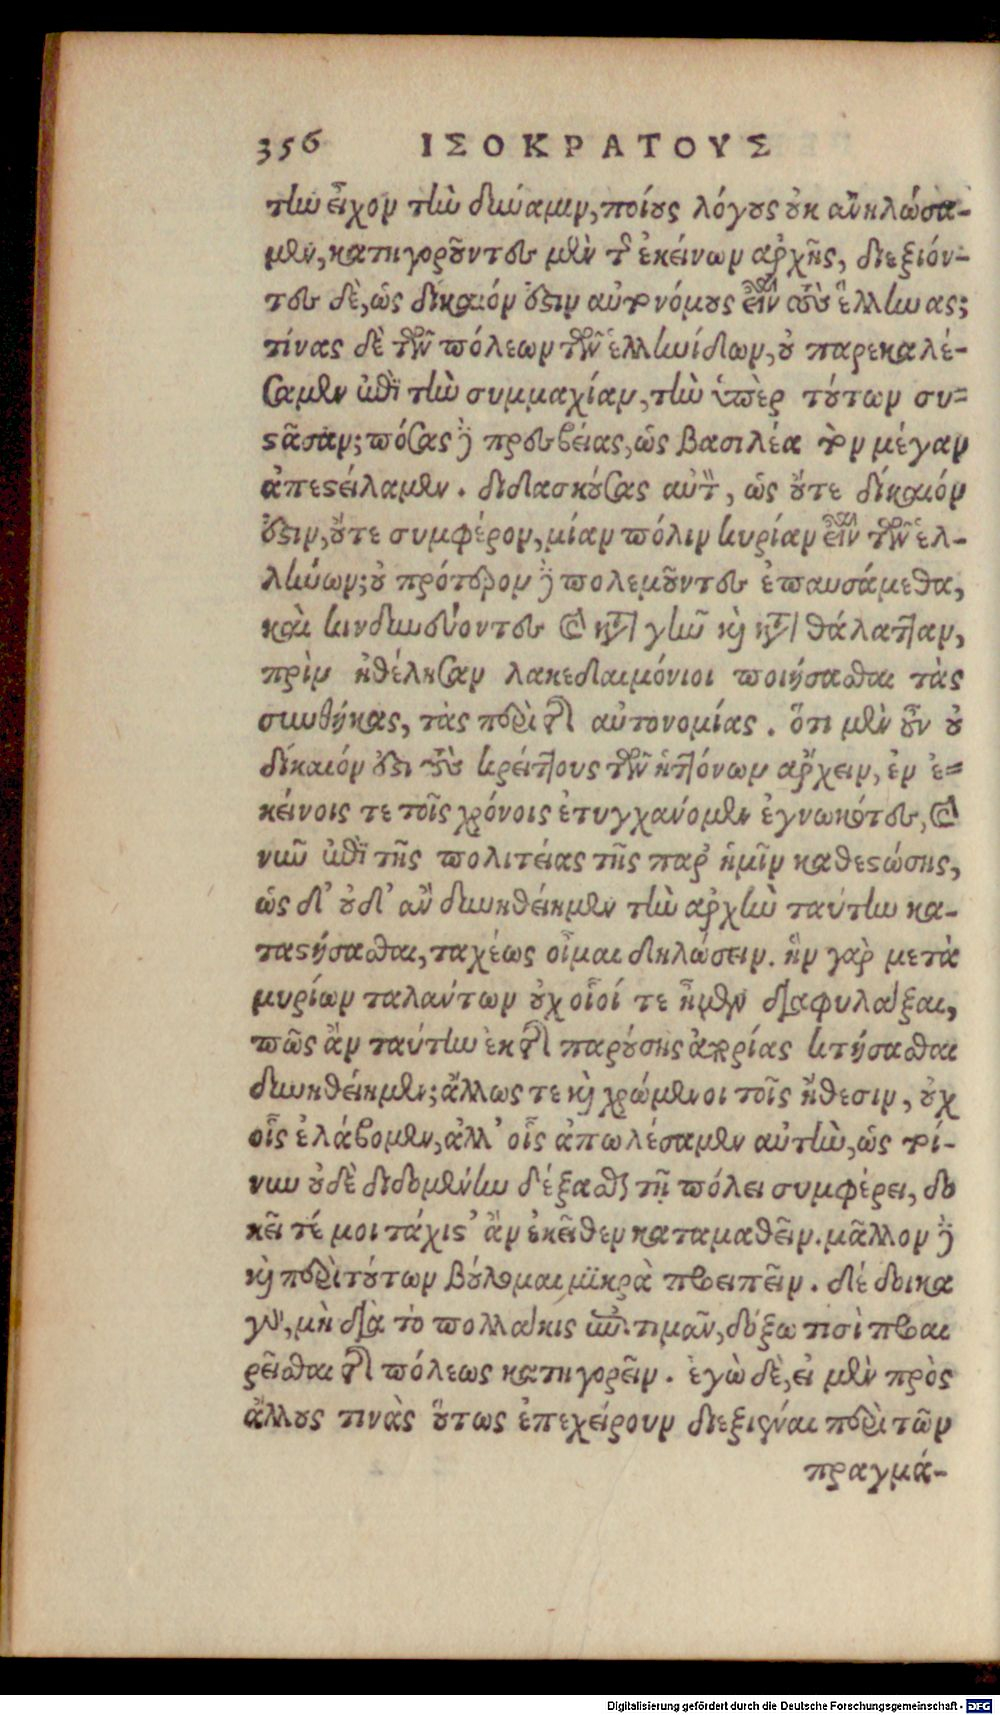 356 ΙΣΟΚΡΑΤΟΥΣ
την εἶχον τὴν δύναμιν, ποίους λόγους οὐκ ἀνηλώσα-
μεν, κατηγοροῦντες μὲν τῆς ἐκείνων ἀρχῆς, διεξιόν-
τες δὲ, ὡς δίκαιόν ἐστιν αὐτονόμους εἶναι τοὺς ἕλληνας;
τίνας δὲ τῶν πόλεων τῶν ἑλληνίδων, οὐ παρεκαλέ-
σαμεν ἐπὶ τὴν συμμαχίαν, τὴν ὑπὲρ τούτων συ-
στᾶσαν; πόσας δὲ πρεσβείας, ὡς βασιλέα τὸν μέγαν
ἀπεστείλαμεν. διδασκούσας αὐτὸν, ὡς οὔτε δίκαιόν
ἐστιν, οὔτε συμφέρον, μίαν πόλιν κυρίαν εἶναι τῶν ἑλ-
λήνων; οὐ πρότερον δὲ πολεμοῦντες ἐπαυσάμεθα,
καὶ κινδυνεύοντες καὶ κατὰ γῆν καὶ κατὰ θάλατταν,
πρὶν ἠθέλησαν λακεδαιμόνιοι ποιήσασθαι τὰς
συνθήκας, τὰς περὶ τῆς αὐτονομίας. ὅτι μὲν οὖν οὐ
δίκαιόν ἐστι τοὺς κρείττους τῶν ἡττόνων ἄρχειν, ἐν ἐ-
κείνοις τε τοῖς χρόνοις ἐτυγχάνομεν ἐγνωκότες, καὶ
νῦν ἐπὶ τῆς πολιτείας τῆς παρ' ἡμῖν καθεστώσης,
ὡς δ' οὐδ' ἂν δυνηθείημεν τὴν ἀρχὴν ταύτην κα-
ταστήσασθαι, ταχέως οἶμαι δηλώσειν. ἣν γὰρ μετὰ
μυρίων ταλάντων οὐχ οἷοί τε ἦμεν διαφυλάξαι,
πῶς ἂν ταύτην ἐκ τῆς παρούσης ἀπορίας κτήσασθαι
δυνηθείημεν; ἄλλως τε καὶ χρώμενοι τοῖς ἤθεσιν, οὐχ
οἷς ἐλάβομεν, ἀλλ' οἷς ἀπωλέσαμεν αὐτὴν, ὡς τοί-
νυν οὐδὲ διδομένην δέξασθαι τῇ πόλει συμφέρει, δο
κεῖ τέ μοι τάχιστ' ἂν ἐκεῖθεν καταμαθεῖν. μᾶλλον δὲ
καὶ περὶ τούτων βούλομαι μικρὰ προειπεῖν. δέδοικα
γὰρ, μὴ διὰ τὸ πολλάκις ἐπιτιμᾶν, δόξω τισὶ προαι
ρεῖσθαι τῆς πόλεως κατηγορεῖν. ἐγὼ δὲ, εἰ μὲν πρὸς
ἄλλους τινὰς οὕτως ἐπεχείρουν διεξιέναι περὶ τῶν
πραγμά-
Digitalisierung gefördert durch die Deutsche Forschungsgemeinschaft - DFG